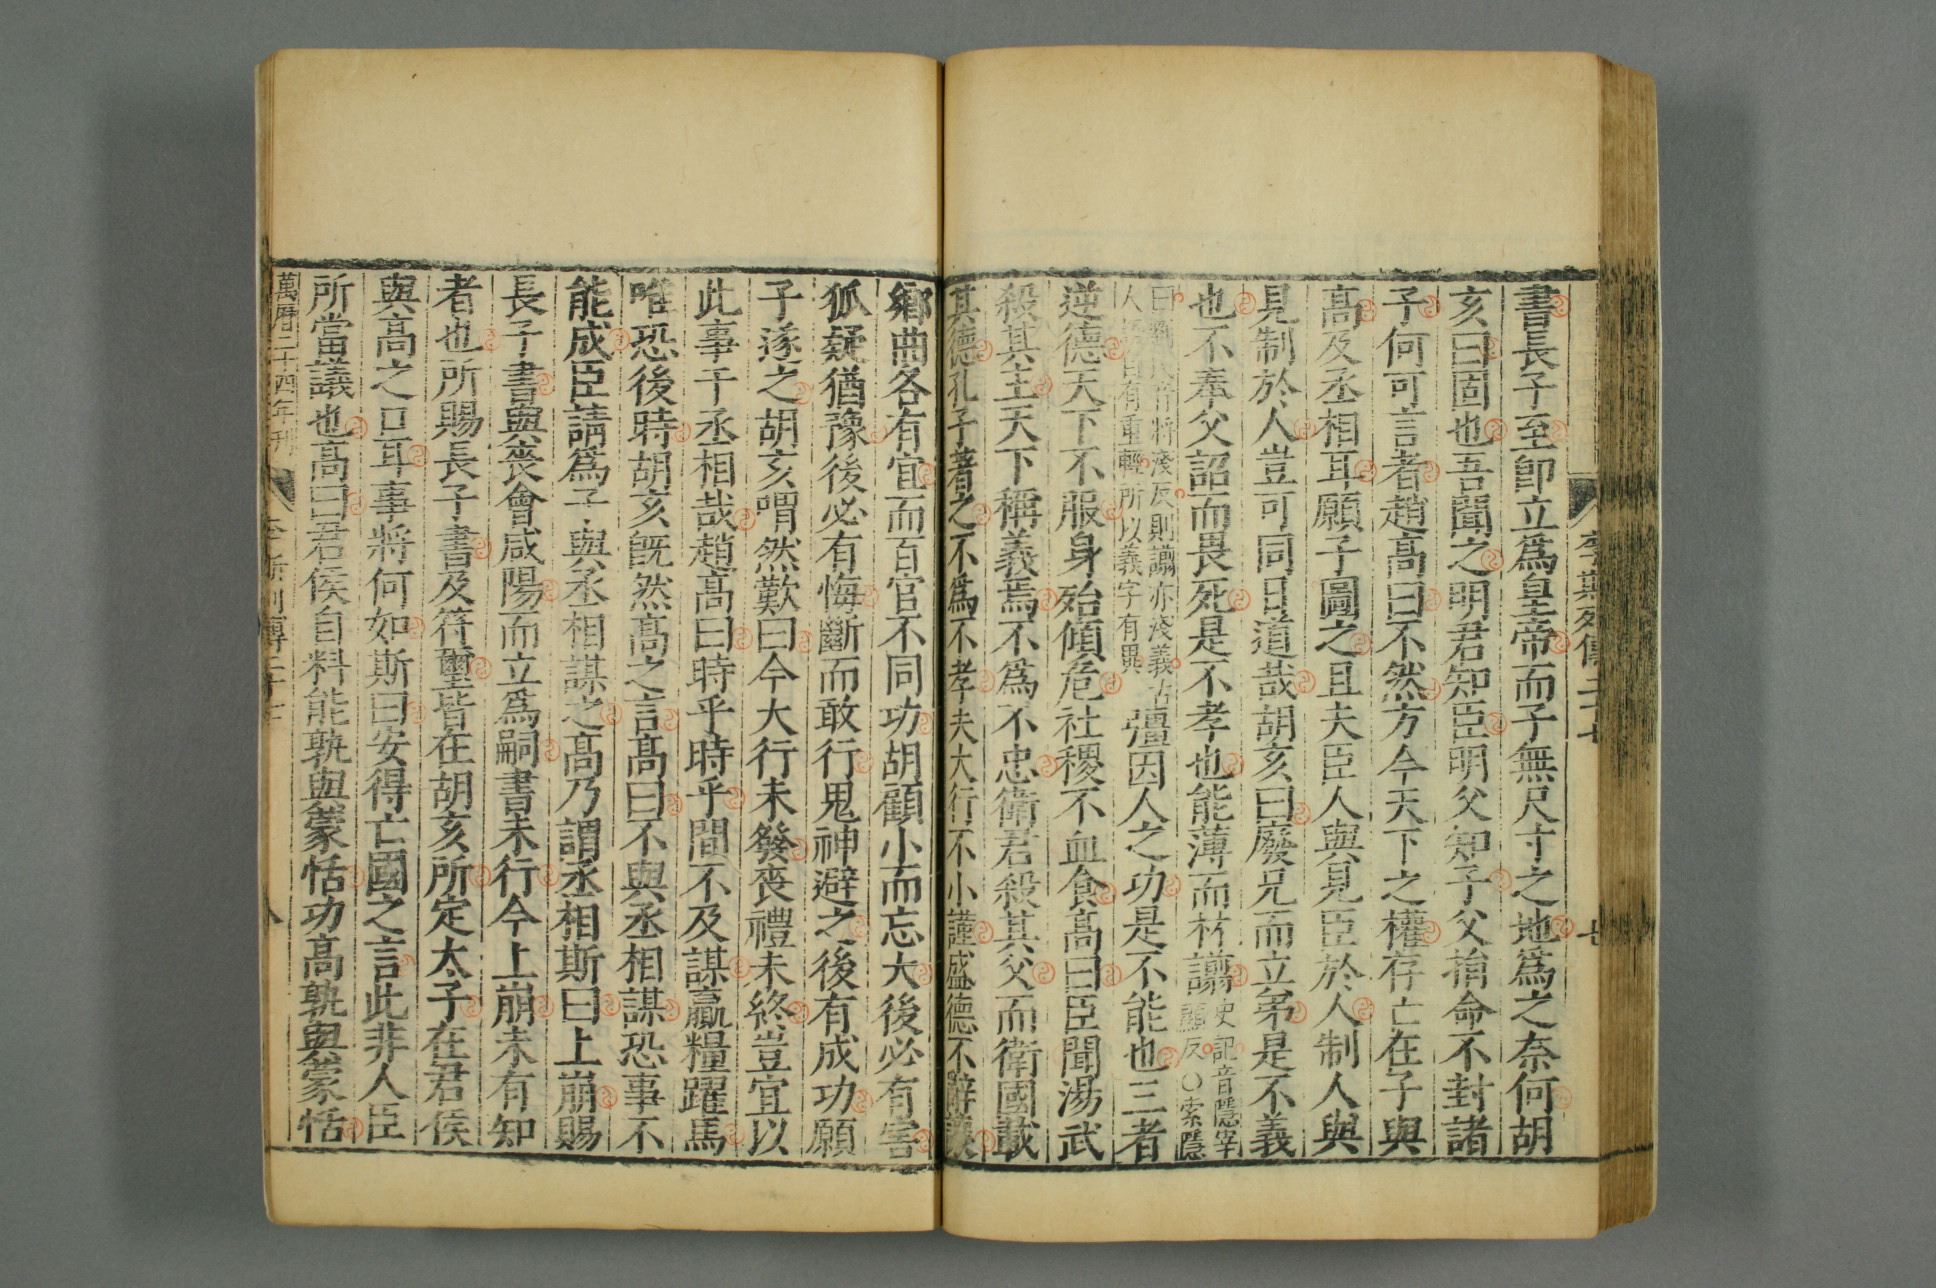 李斯列傳二十七
七
書長子至卽立爲皇帝而子無尺寸之地爲之奈何胡
亥曰固也吾聞之明君知臣明父知子父捐命不封諸
子何可言者趙高曰不然方今天下之權存亡在子與
高及丞相耳願子圖之且夫臣人與見臣於人制人與
見制於人豈可同日道哉胡亥曰廢兄而立弟是不義
也不奉父詔而畏死是不孝也能薄而材譾
史記音隱宰
顯反○索隱
曰
音將淺反則譾亦淺義古
人
有重輕所以義字有異
彊因人之功是不能也三者
逆德天下不服身殆傾危社稷不血食高曰臣聞湯武
殺其主天下稱義焉不爲不忠衛君殺其父而衛國載
其德孔子著之不爲不孝夫大行不小謹盛德不辭讓
鄉曲各有宜而百官不同功胡顧小而忘大後必有害
狐疑猶豫後必有悔斷而敢行鬼神避之後有成功願
子遂之胡亥喟然歎曰今大行未發喪禮未終豈宜以
此事干丞相哉趙高曰時乎時乎間不及謀贏糧躍馬
唯恐後時胡亥旣然高之言高曰不與丞相謀恐事不
能成臣請爲子與丞相謀之高乃謂丞相斯曰上崩賜
長子書與喪會咸陽而立爲嗣書未行今上崩未有知
者也所賜長子書及符璽皆在胡亥所定太子在君侯
與高之口耳事將何如斯曰安得亡國之言此非人臣
所當議也高曰君侯自料能孰與蒙恬功高孰與蒙恬
萬曆二十四年刊
斯列傳二十七
八